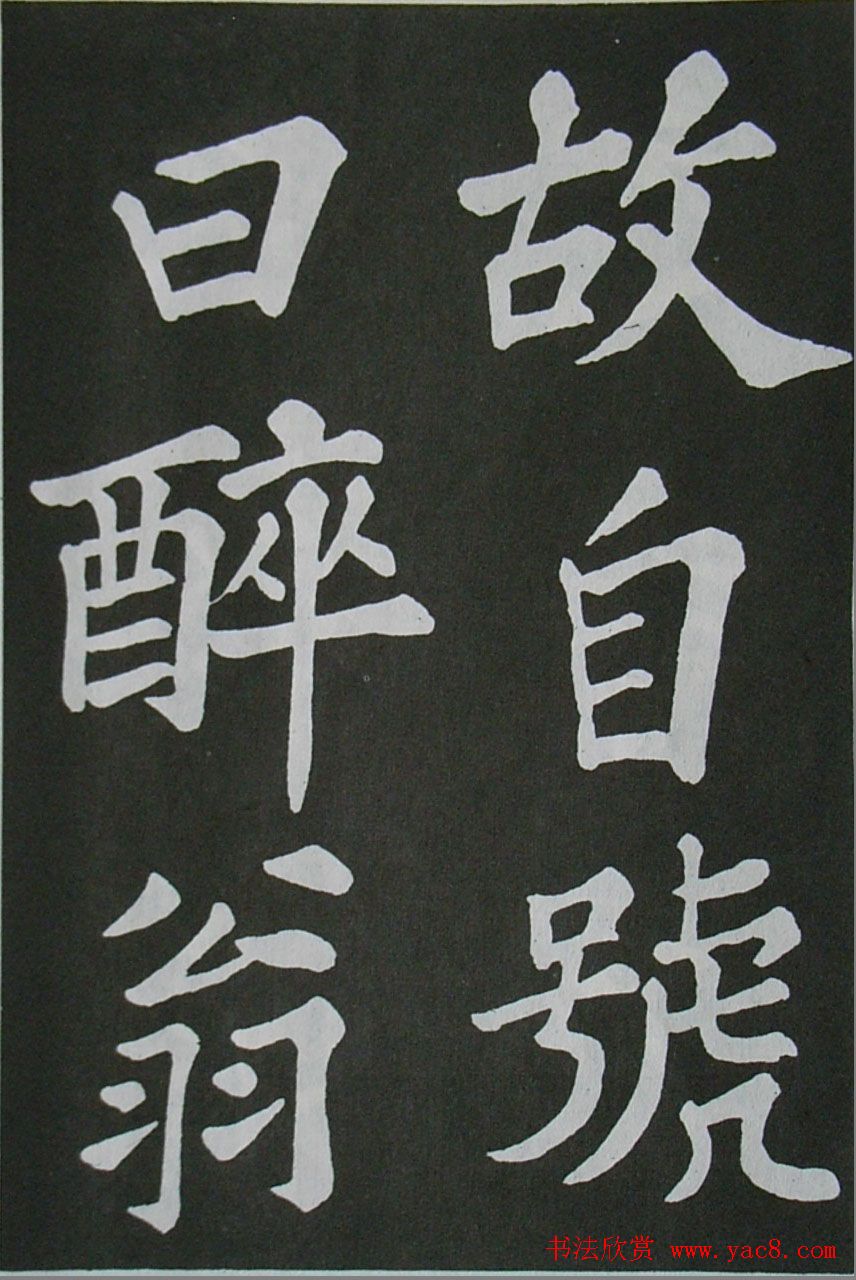 故自號
曰醉翁
书法欣赏 www.yac8.com